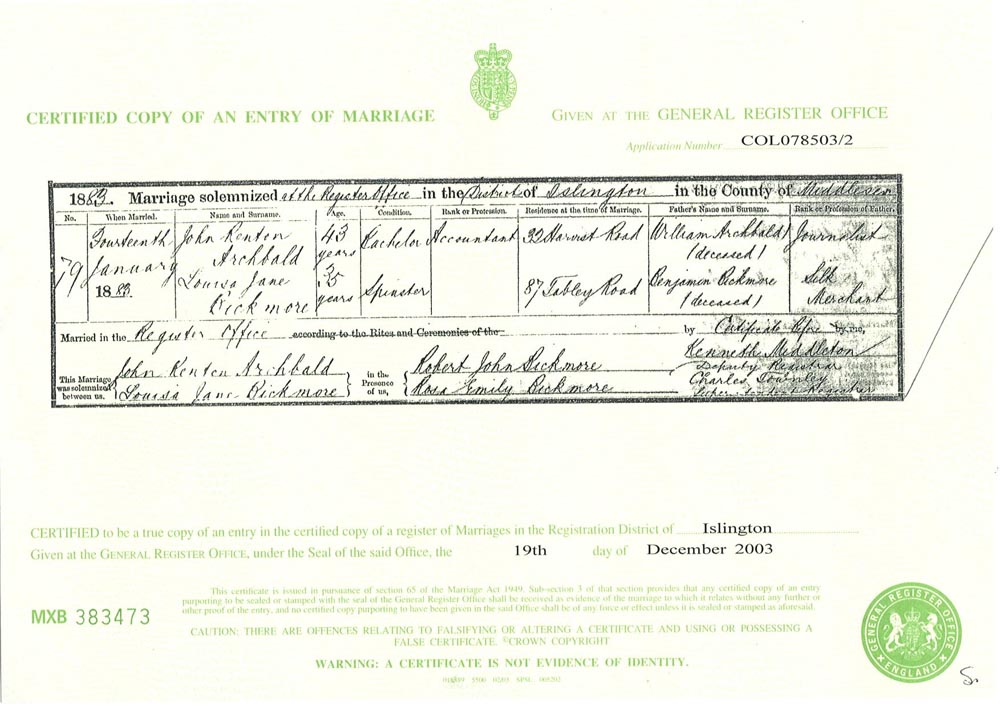 CERTIFIED COPY OF AN ENTRY OF MARRIAGE
GIVEN AT THE GENERAL REGISTER OFFICE
Application Number COL078503/2
1883. Marriage solemnized at the Register Office in the District of Islington in the County of Middlesex
No. When Married. Name and Surname. Age. Condition. Rank or Profession. Residence at the time of Marriage. Father's Name and Surname. Rank or Profession of Father.
79
Fourteenth January 1883
John Renton Archbald
43 years
Bachelor
Accountant
32 Harvist Road
William Archbald (deceased)
Journalist
Louisa Jane Bickmore
35 years
Spinster
87 Tabley Road
Benjamin Bickmore (deceased)
Silk Merchant
Married in the Register Office according to the Rites and Ceremonies of the by Certificate before by me,
This Marriage was solemnized between us,
John Renton Archbald
Louisa Jane Bickmore
in the Presence of us,
Robert John Bickmore
Rosa Emily Bickmore
Kenneth Middleton
Deputy Registrar
Charles Townley
Superintendent Registrar
CERTIFIED to be a true copy of an entry in the certified copy of a register of Marriages in the Registration District of Islington
Given at the GENERAL REGISTER OFFICE, under the Seal of the said Office, the 19th day of December 2003
This certificate is issued in pursuance of section 65 of the Marriage Act 1949. Sub-section 3 of that section provides that any certified copy of an entry
purporting to be sealed or stamped with the seal of the General Register Office shall be received as evidence of the marriage to which it relates without any further or
other proof of the entry, and no certified copy purporting to have been given in the said Office shall be of any force or effect unless it is sealed or stamped as aforesaid.
MXB 383473
CAUTION: THERE ARE OFFENCES RELATING TO FALSIFYING OR ALTERING A CERTIFICATE AND USING OR POSSESSING A
FALSE CERTIFICATE. ©CROWN COPYRIGHT
WARNING: A CERTIFICATE IS NOT EVIDENCE OF IDENTITY.
GENERAL REGISTER OFFICE
ENGLAND